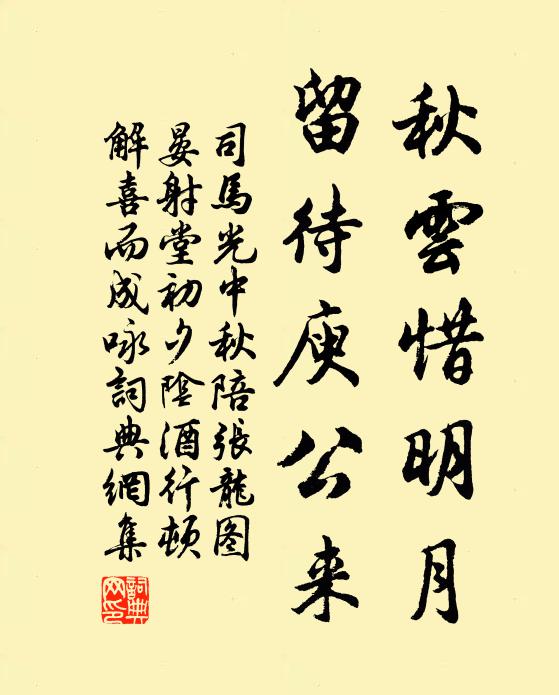 秋雲惜明月
留待庾公来
司馬光中秋陪張龍图
晏射堂初夕陰酒行頓
解喜而成咏詞典網集